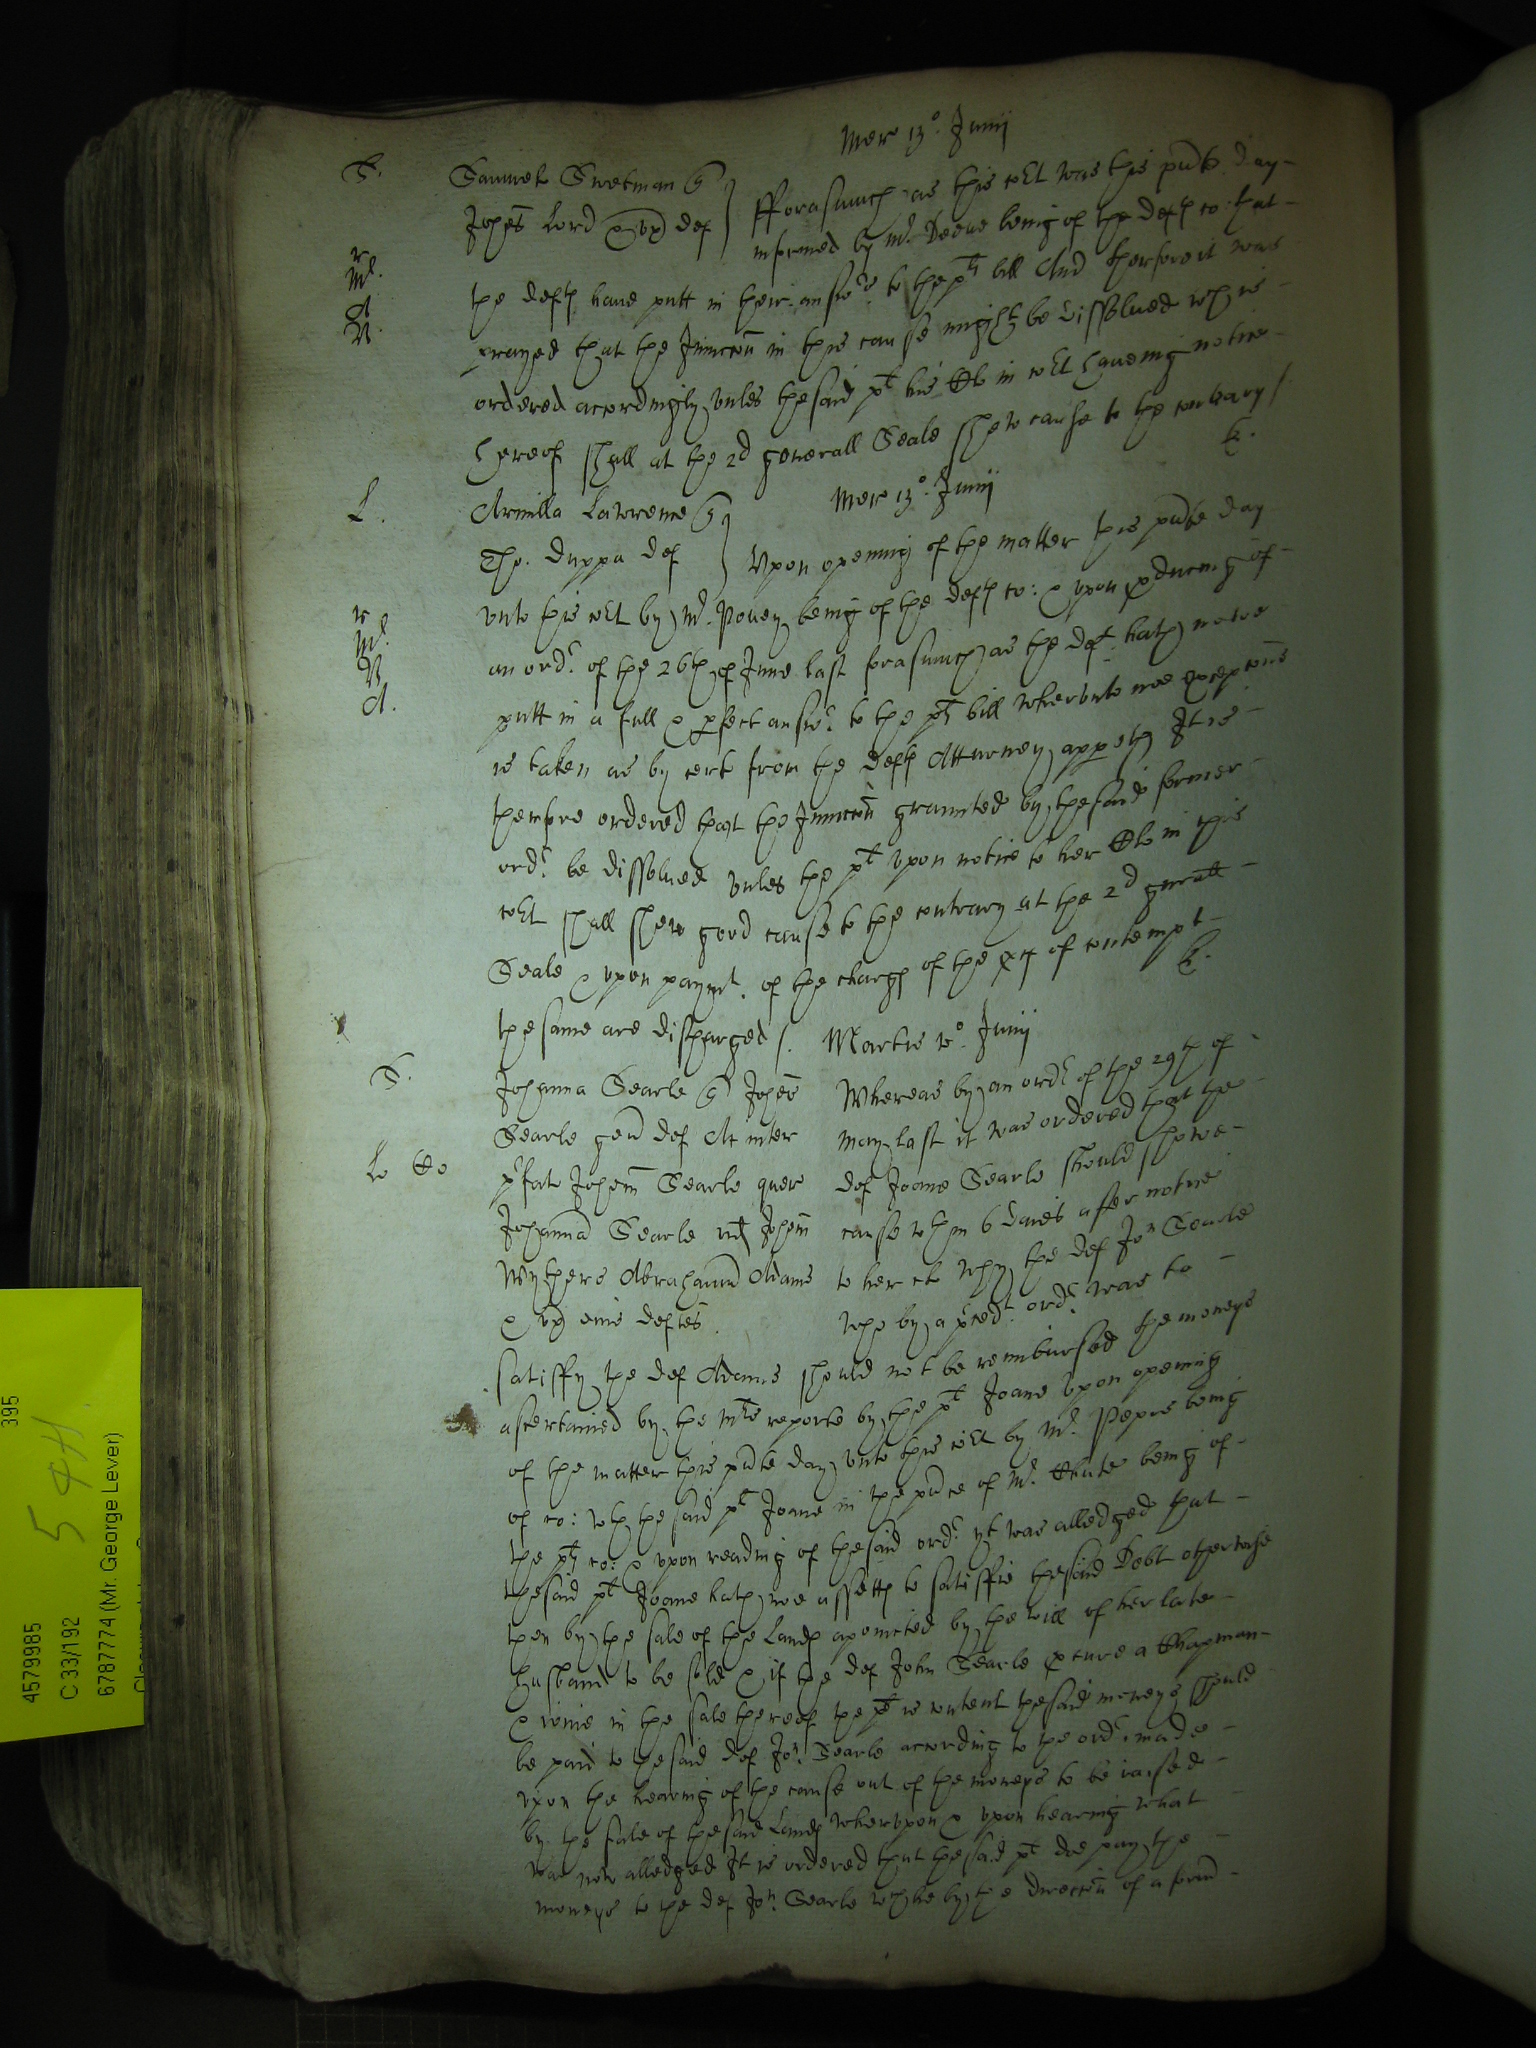 Merc 13o. Junij
S. Samuel Swetman q
Johes Lord & ux def
fforasmuch as this Cort was this pnte day
informed by Mr. being of the deftes co: that
r
Ml.
A
V.
the deftes have putt in their answere to the plts bill And therfore it was
prayed that the Iniuccon in this cause might be dissolued wch is
ordered accordingly vnles the said plt his Cl in Cort haueing notice
hereof shall at the 2d generall Seale shew cause to the contrary /
E.
Merc 13o. Junij
L. Armilla Lawrence q
Tho. Duppa def
Vpon opening of the matter this pnte day
vnto this Cort by Mr. Povey being of the deftes co: & vpon pducing of
r
Ml.
V
A.
an ordr. of the 26th of June last forasmuch as the deft. hath nowe
putt in a full & pfect answr. to the plts bill wherunto noe excepcons
is taken as by cert from the deftes Atturney appeth It is
therfore ordered that the Iniuccon graunted by the said former
ordr. be dissolued vnles the plt vpon notice to her Cl in this
Cort shall shew good cause to the contrary at the 2d genall
Seale & vpon paymt. of the charges of the of contempt
E.
the same are discharged /. Martis Junij
S. Johanna Searle q Johes
Searle gen def Et inter
Lo Co pfat Johem Searle quer
Johanna Searle vid Johem
Wythers Abrahamu Adams
& ux eius deftes.
Whereas by an ordr of the 29th of
May last it was ordered that the
def Joane Searle should shewe
cause wthin 6 daies after notice
to her why the def Jon Searle
who by a pced. ordr. was to
satisfy the def Adams should not be reimbursed the moneys
ascertained by the Mrs reporte by the plt Joane Vpon opening
of the matter this pnte day vnto this Cort by Mr. Pepis being
of co: wth the said plt Joane in the pnce of Mr. Chute being of
the plts co: & vpon reading of the said ordr. yt was alledged that
the said plt Joane hath noe assetts to satisfie the said Debt otherwise
then by the sale of the Lands apointed by the will of her late
husband to be sold & if the def John Searle pcure a Chapman
& ioine in the sale thereof the plt is content the said moneys should
be paid to the said def Jon. Searle according to the ordr. made
vpon the hearing of the cause out of the moneys to be raised
by the sale of the said Lands wherupon & vpon hearing what
was now alledged It is ordered that the said plt doe pay the
moneys to the def Jon. Searle wch he by the direccon of a form
395
5 4H.
4579985
C 33/192
6787774 (Mr. George Lever)